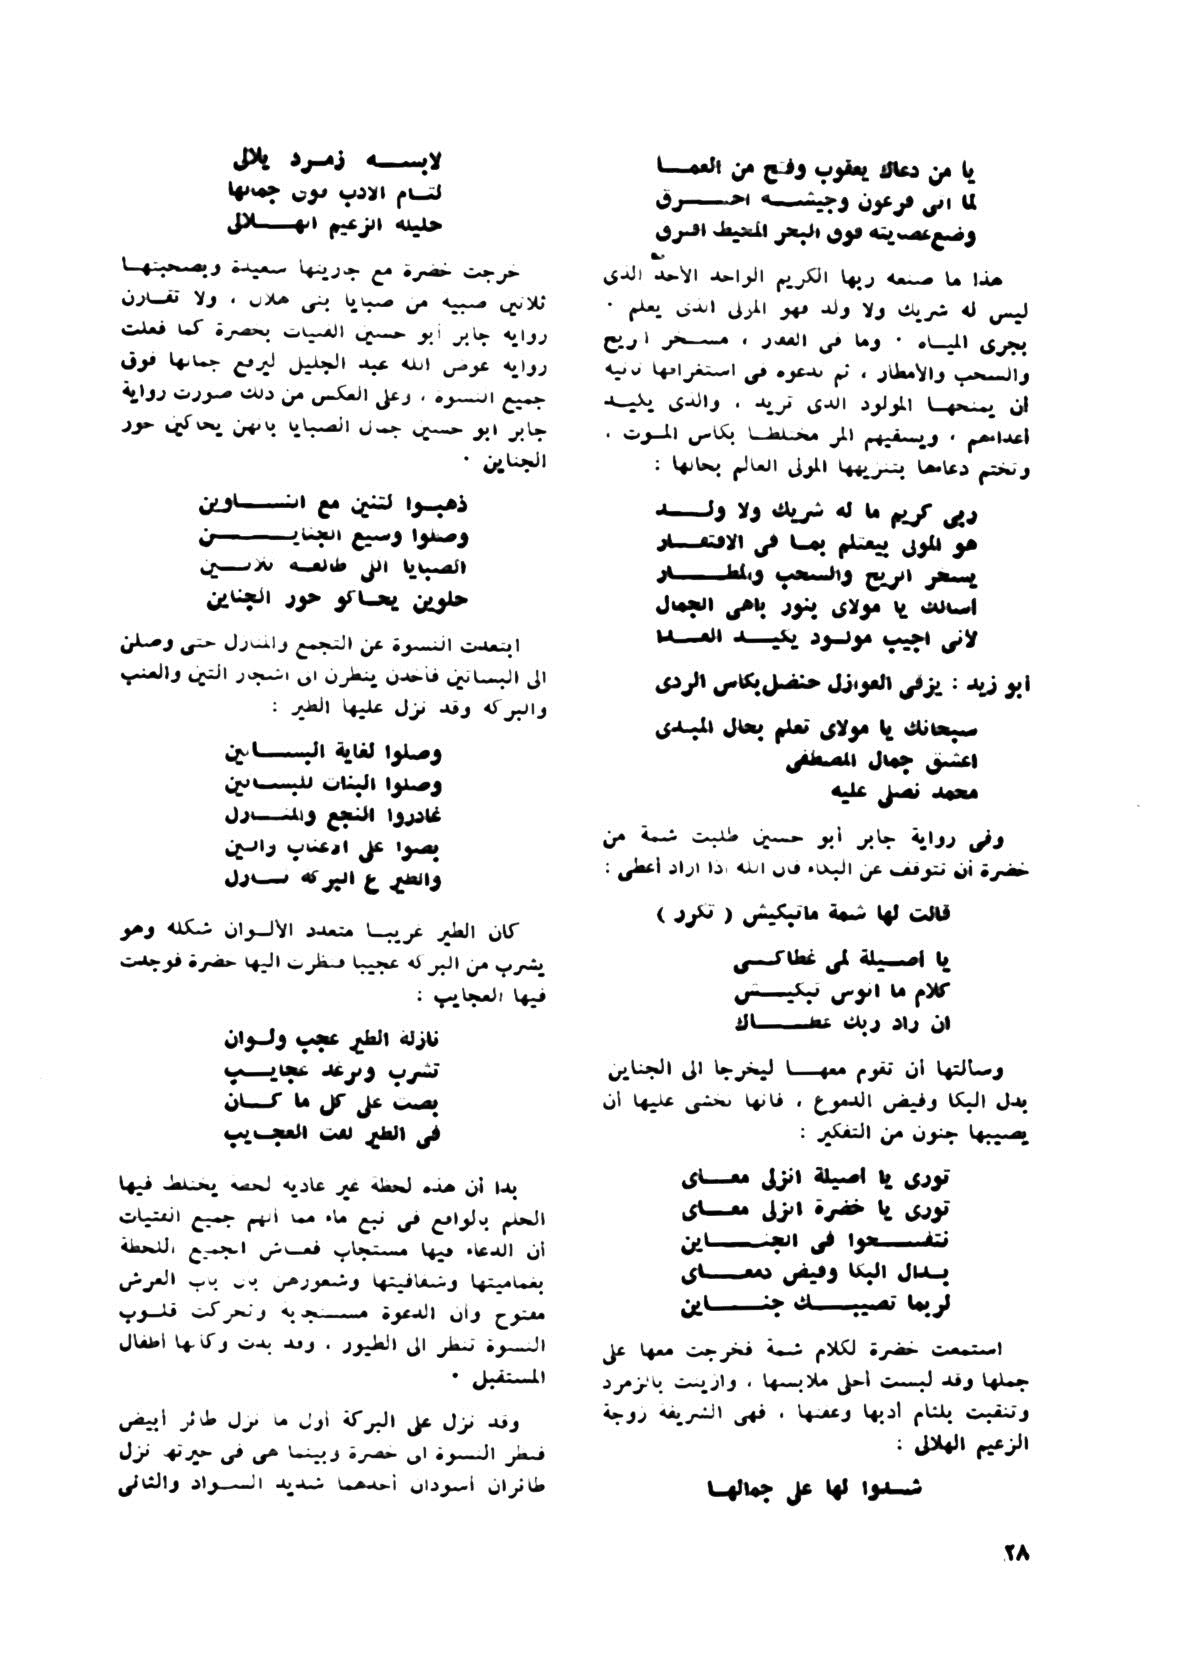 يا من دعاك يعقوب وفتح من العمـــا
لما اتى فرعون وجيشـــه احـــرق
وضع عصايته فوق البحر المحيط افرق
هذا ما صنعه ربها الكريم الواحد الأحد الذى
ليس له شريك ولا ولد فهو المولى الذى يعلم ٠
يجرى الميـاه ٠ وما فى القفر ، مسـخر الريح
والسحب والأمطار ، ثم تدعوه فى استغراقها ثانية
أن يمنحهـا المولود الذى تريد ، والذى يكيـد
أعداءهم ، ويسقيهم المر مختلطـا بكاس المـوت ،
وتختم دعاءها بتنزيهها المولى العالم بحالها :
ربى كريم ما له شريك ولا ولــد
هو المولى بيعلم بمـا فى الاقفــار
يسخر الريح والسحب والمطــار
أسالك يا مولاى بنور باهى الجمال
لأنى اجيب مولـود يكيـد العــدا
أبو زيد : يزقى العوازل حنضل بكاس الردى
سبحانك يا مولاى تعلم بحال المبـدى
اعشق جمال المصطفى
محمد نصلى عليه
وفى رواية جابر أبو حسين طلبت شمة من
خضرة أن تتوقف عن البكاء فان الله اذا اراد أعطى :
قالت لها شمة ماتبكيش ( تكرر )
يا أصـيلة لمى غطاكــى
كلام ما انوس تبكيــش
ان راد ربك عطــــاك
وسألتها أن تقوم معهـــا ليخرجا الى الجناين
بدل البكا وفيض الدموع ، فانها تخشى عليها أن
يصيبها جنون من التفكير :
تورى يا أصيلة انزلى معــاى
تورى يا خضرة انزلى معــاى
نتفســـحوا فى الجنــــاين
بــدال البكا وفيض دمعــاى
لربما تصيبـــك جنــــاين
استمعت خضرة لكلام شمة فخرجت معها على
جملها وقد لبست أحلى ملابسها ، وازينت بالزمرد
وتنقبت بلثام أدبها وعفتها ، فهى الشريفة زوجة
الزعيم الهلالى :
شــدوا لها على جمالهـا
لابســـه زمـرد يلالى
لتـام الادب فوق جمالها
حليلة الزعيم الهـــلالى
خرجت خضرة مع جاريتها سعيدة وبصحبتهـا
ثلاثين صبيه من صبايا بنى هلال ، ولا تقـارن
رواية جابر أبو حسين الفتيات بخضرة كما فعلت
رواية عوض الله عبد الجليل ليرفع جمالها فوق
جميع النسوة ، وعلى العكس من ذلك صورت رواية
جابر ابو حسين جمال الصبايا بانهن يحاكين حور
الجناين ٠
ذهبـوا لتنين مع النســـاوين
وصلوا وسيع الجنايـــــن
الصبايا اللى طالعـه تلاتــين
حلوين يحـاكو حور الجناين
ابتعدت النسوة عن التجمع والمنازل حتى وصلن
الى البساتين فأخذن ينظرن الى اشجار التين والعنب
والبركه وقد نزل عليها الطير :
وصلوا لغاية البســـاتين
وصلوا البنات للبســاتين
غادروا النجع والمنــازل
بصوا على الاعناب والتين
والطير ع البركه نــازل
كان الطير غريبـا متعدد الألـوان شكله وهو
يشرب من البركه عجيبا فنظرت اليها خضرة فوجدت
فيها العجايب :
نازلة الطير عجب ولـوان
تشرب وترغد عجايـــب
بصت على كل ما كــان
فى الطير لقت العجـايب
بدا أن هذه لحظة غير عادية لحظة يختلط فيها
الحلم بالواقع فى نبع ماء مما ألهم جميع الفتيات
أن الدعاء فيها مستجاب فعـاش الجميع اللحظة
بغماميتها وشفافيتها وشعورهن بأن باب العرش
مفتوح وأن الدعوة مسـتجدية وتحركت قلـوب
النسوة تنظر الى الطيور ، وقد بدت وكأنها أطفال
المستقبل ٠
وقد نزل على البركة أول ما نزل طائر أبيض
فنظر النسوة الى خضرة وبينما هى فى حيرتها نزل
طائران أسودان أحدهما شديد السـواد والثانى
٢٨